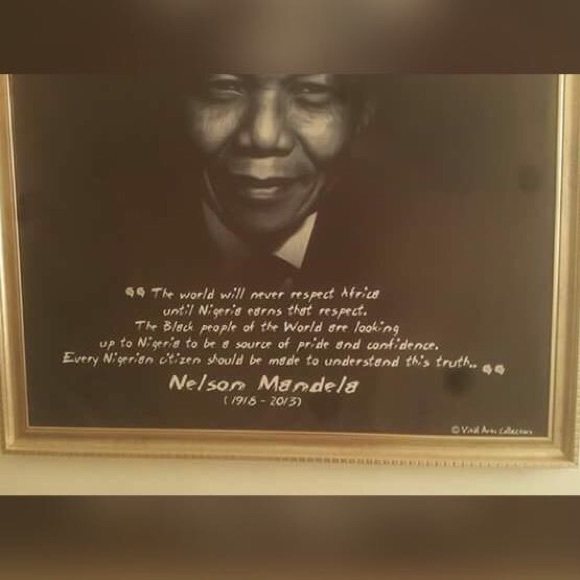 “ The world will never respect Africa
until Nigeria earns that respect.
The Black people of the World are looking
up to Nigeria to be a source of pride and confidence.
Every Nigerian citizen should be made to understand this truth.. ”
Nelson Mandela
(1918 - 2013)
© Vinil Arin Collection